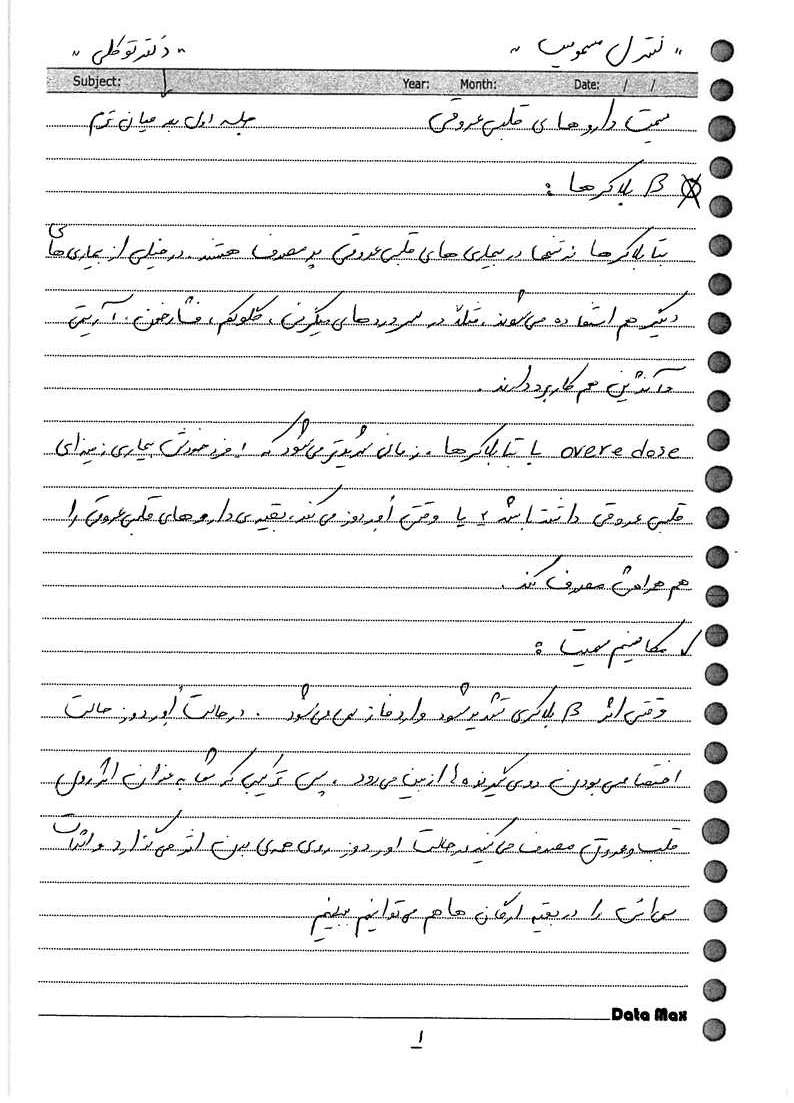 " کنترل مسمومیت " " دکتر توکلی "
Subject: Year: Month: Date: / /
سمیت داروهای قلبی عروقی جلسه اول بعد میان ترم
β بلاکرها :
بتا بلاکرها نه تنها در بیماری های قلبی عروقی پر مصرف هستند. در خیلی از بیماری های
دیگر هم استفاده می شوند، مثلاً در سردردهای میگرن، گلوکوم، فشارخون، آریتمی
و آنژین هم کاربرد دارند.
overe dose با بتا بلاکرها، زمانی شدیدتر می شود که فرد خودش بیماری زمینه ای
قلبی عروقی داشته باشد یا وقتی اُوردوز می کند، بقیه ی داروهای قلبی عروقی را
هم همراهش مصرف کند.
✓ مکانیسم سمیت :
وقتی اثر β بلاکری تشدید شود وارد فاز سمی می شود. در حالت اُوردوز حالت
اختصاصی بودن روی گیرنده ها از بین می رود، پس ترکیبی که شما به عنوان اثر روی
قلب و عروق مصرف می کنید در حالت اوردوز روی همه ی بدن اثر می گذارد و اثرات
سمی اش را در بقیه ارگان ها هم می توانیم ببینیم
Data Max
۱